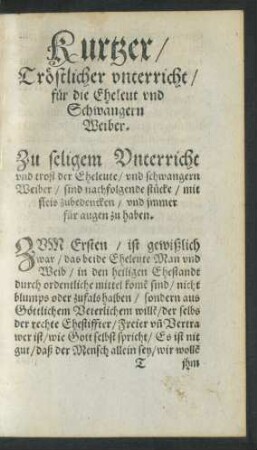 Kurtzer /
Tröstlicher vnterricht /
für die Eheleut vnd
Schwangern
Weiber.
Zu seligem Vnterricht
vnd trost der Eheleute / vnd schwangern
Weiber / sind nachfolgende stücke / mit
fleis zubedencken / vnd jmmer
für augen zu haben.
ZVM Ersten / ist gewißlich
war / das beide Eheleute Man vnd
Weib / in den heiligen Ehestandt
durch ordentliche mittel komē sind / nicht
blumps oder zufals halben / sondern aus
Göttlichem Veterlichem willē / der selbs
der rechte Ehestiffter / Freier vn̄ Vertra
wer ist / wie Gott selbst spricht / Es ist nit
gut / daß der Mensch allein sey / wir wollē
T jhm